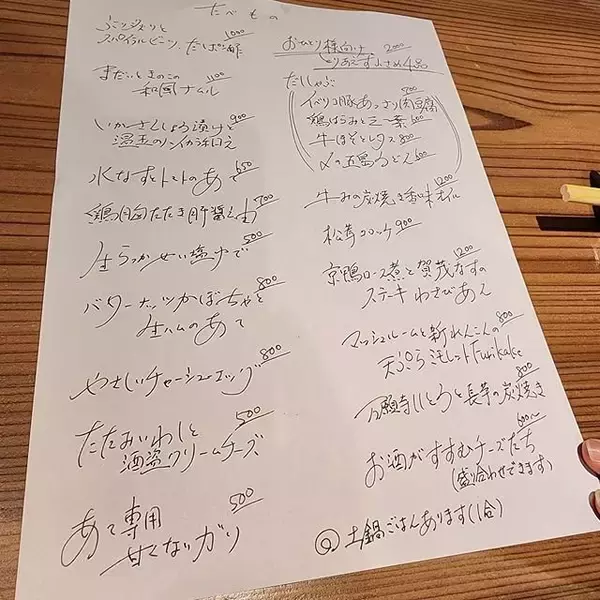 たべもの
スパイラルビーツ、たこぽん酢 1000
まだいときのこの 1100
和風ナムル
いかさんしょう漬けと 900
温玉のリンイカ和え
水なすとトマトのあて 650
鶏胸肉たたき肝醤油 700
生らっかせい塩ゆで 500
バターナッツかぼちゃと 800
生ハムのあて
やさしいチャーシューエッグ 800
たたみいわしと 500
酒盗クリームチーズ
あて専用 500
甘くないガリ
おひとり様向け 2000
とりあえず小さめ4品
だししゃぶ
イベリコ豚あっさり肉豆腐 700
鶏はらみと三つ葉 600
牛ほほとレタス 800
〆の五島うどん 600
牛みの炭焼き香味オイル 1200
松茸コロッケ 900
京鴨ロース煮と賀茂なすの 1200
ステーキ わさびあん
マッシュルームと新れんこんの 800
天ぷら ミモレットFurikake
万願寺とうと長芋の炭焼き 800
お酒がすすむチーズたち 600〜
(盛り合わせできます)
土鍋ごはんあります(1合)